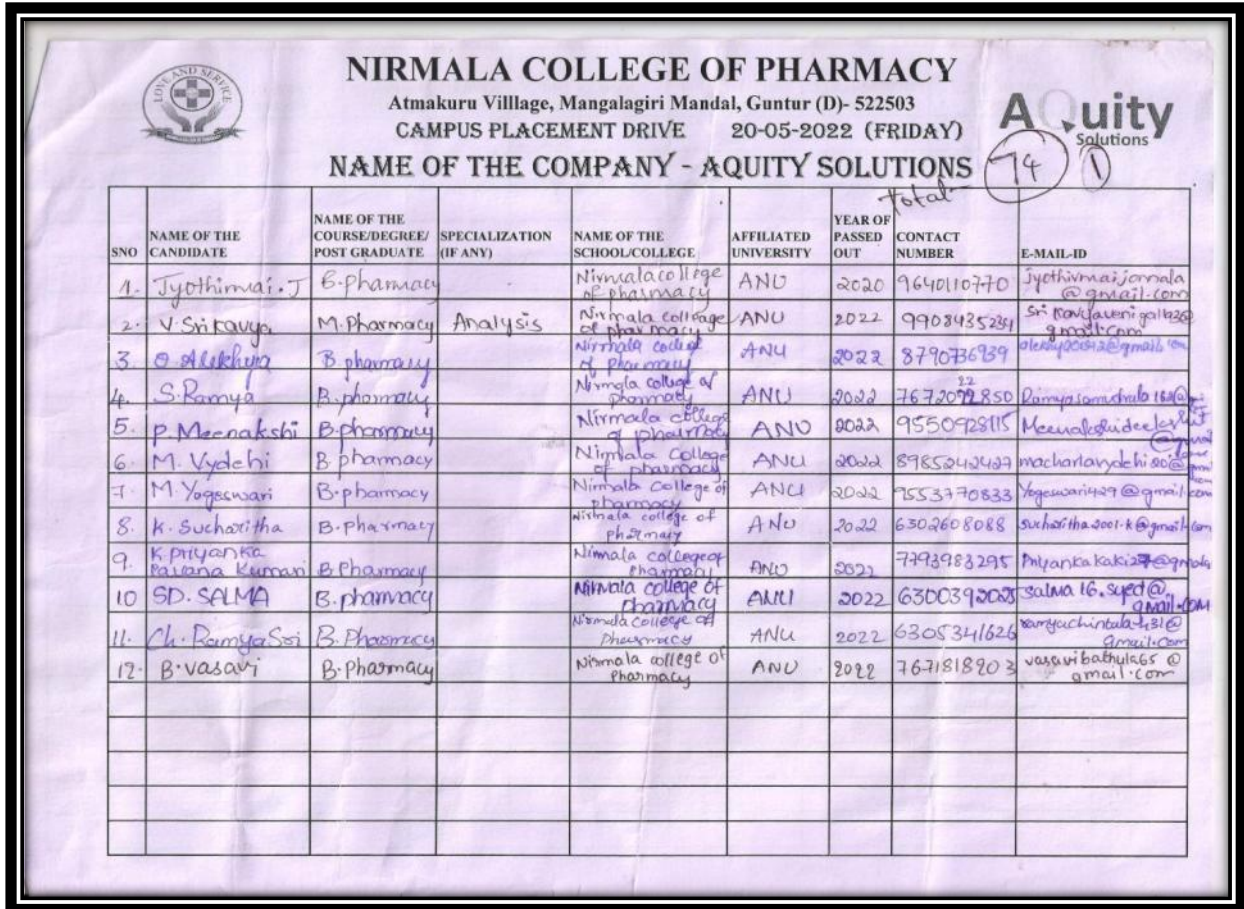 LOVE AND SERVICE
NIRMALA COLLEGE OF PHARMACY
Atmakuru Villlage, Mangalagiri Mandal, Guntur (D)- 522503
CAMPUS PLACEMENT DRIVE 20-05-2022 (FRIDAY)
AQuity
Solutions
NAME OF THE COMPANY - AQUITY SOLUTIONS
Total- 74 1
SNO NAME OF THE CANDIDATE NAME OF THE COURSE/DEGREE/ POST GRADUATE SPECIALIZATION (IF ANY) NAME OF THE SCHOOL/COLLEGE AFFILIATED UNIVERSITY YEAR OF PASSED OUT CONTACT NUMBER E-MAIL-ID
1. Jyothirmai.J B.pharmacy Nirmala college of pharmacy ANU 2020 9640110770 Jyothirmaijonnala @gmail.com
2. V.Srikavya M.Pharmacy Analysis Nirmala college of pharmacy ANU 2022 9908435234 @gmail.com
3. O.Alekhya B.pharmacy Nirmala college of pharmacy ANU 2022 8790736939 @gmail.com
4. S.Ramya B.pharmacy Nirmala college of pharmacy ANU 2022
5. P.Meenakshi B.pharmacy Nirmala college of pharmacy ANU 2022 9550928115
6. M.Vydehi B.pharmacy Nirmala College of pharmacy ANU 2022 8985242427
7. M.Yogeswari B.pharmacy Nirmala College of pharmacy ANU 2022 9553770833 Yogeswari429@gmail.com
8. K.Sucharitha B.pharmacy Nirmala college of pharmacy ANU 2022 6302608088 sucharitha2001.k@gmail.com
9. K priyanka Pavana Kumari B.Pharmacy Nirmala college of pharmacy ANU 2022 7793983295
10 SD.SALMA B.pharmacy Nirmala college of pharmacy ANU 2022 6300392025 salma16.syed@ gmail.com
11. Ch.RamyaSri B.Pharmacy Nirmala college of Pharmacy ANU 2022 6305341626 ramyachintala431@ gmail.com
12. B.vasavi B.Pharmacy Nirmala college of Pharmacy ANU 2022 7671818903 vasavibathula65@ gmail.com